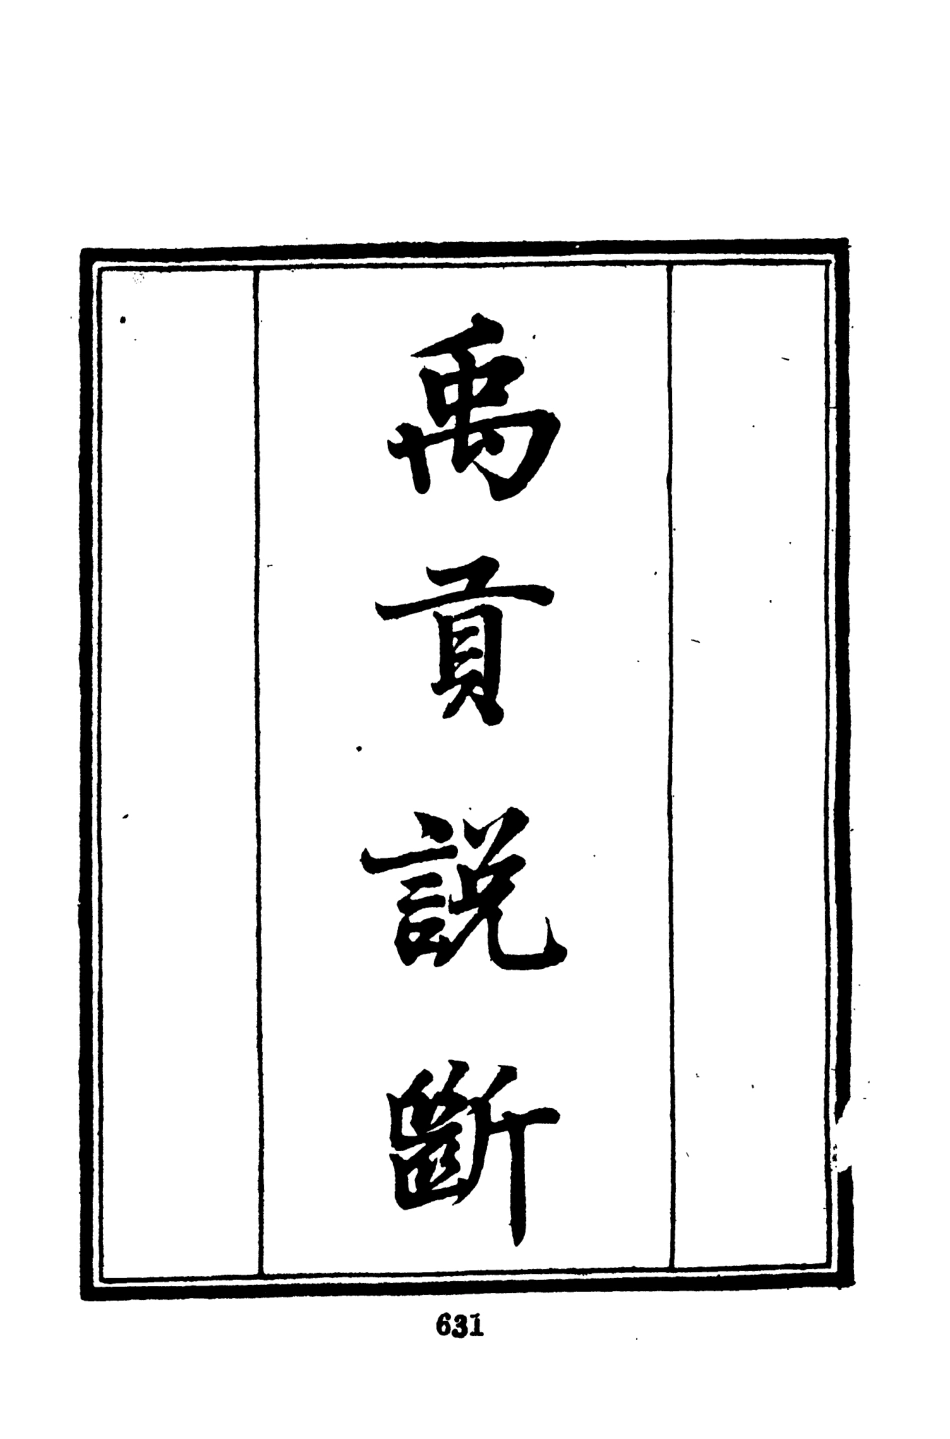 禹貢說斷
631